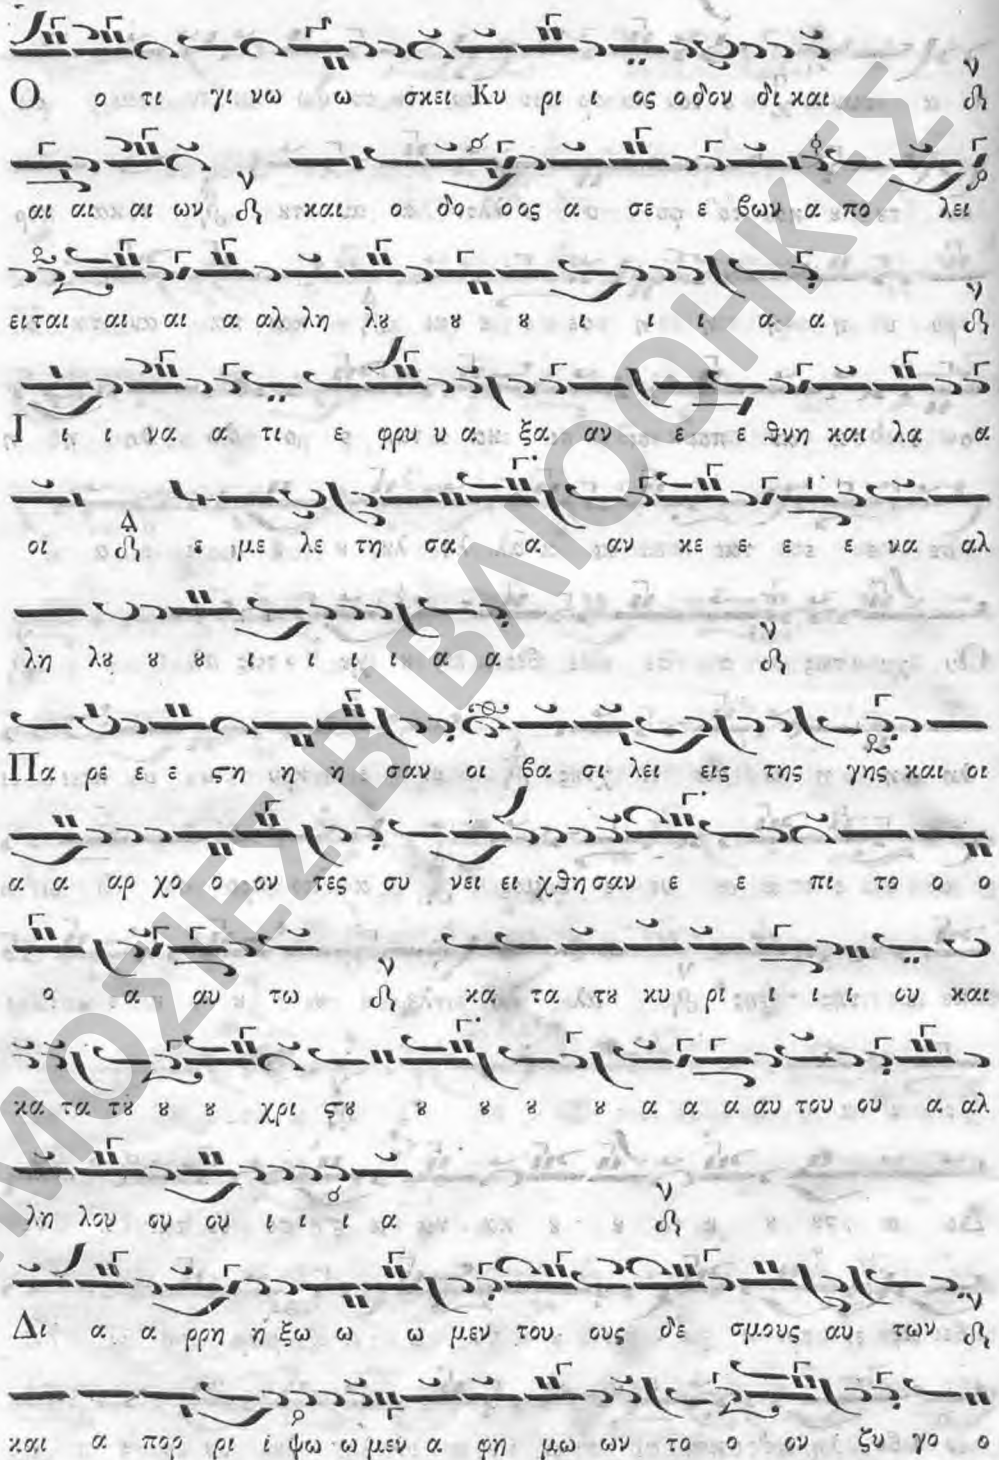 Ο ο τι γι νω ω σκει Κυ ρι ι ος ο δον δι και
αι αι αι ων και ο δο ο ος α σε ε βων α πο λει
ει ται αι αι α αλ λη λȣ ȣ ȣ ι ι ι α α
Ι ι ι να α τι ε φρυ υ α ξα αν ε ε θνη και λα α
οι ε με λε τη σα α αν κε ε ε ε να αλ
λη λȣ ȣ ȣ ι ι ι ι α α
Πα ρε ε ε ϛη η η σαν οι βα σι λει εις της γης και οι
α α αρ χο ο ον τες συ νει ει χθη σαν ε ε πι το ο ο
ο α αυ τω κα τα τȣ κυ ρι ι ι ι ου και
κα τα τȣ ȣ ȣ χρι ϛȣ ȣ ȣ ȣ ȣ α α α αυ του ου α αλ
λη λου ου ου ι ι ι α
Δι α α ρρη ή ξω ω ω μεν του ους δε σμους αυ των
και α πορ ρι ί ψω ω μεν α φη μω ων το ο ον ζυ γο ο
ΜΟΣΙΕΣ ΒΙΒΛΙΟΘΗΚΕΣ